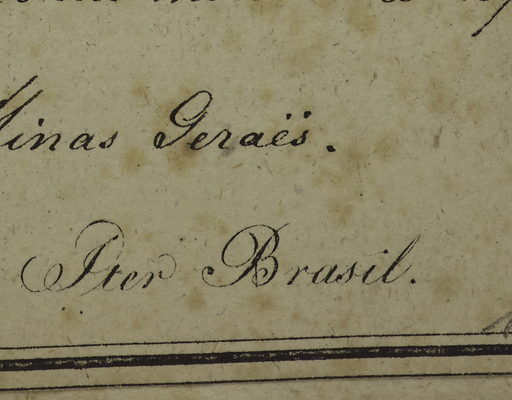 Minas Geraës.
Iter Brasil.